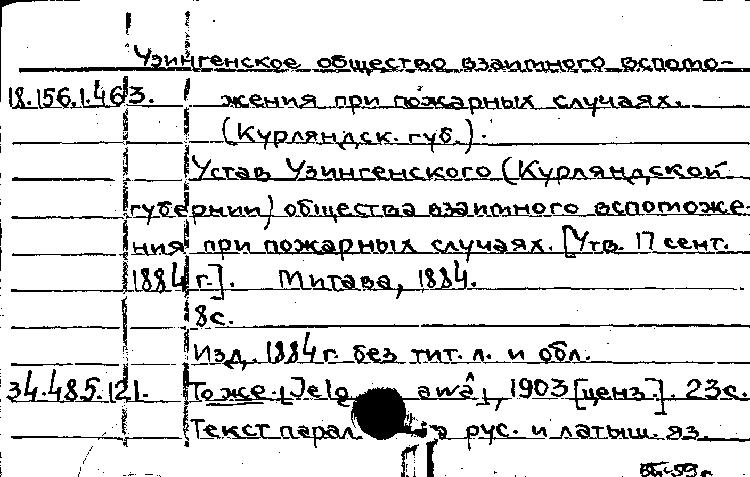 Узингенское общество взаимного вспомо-
18.156.1.463. жения при пожарных случаях.
(Курляндск. губ.).
Устав Узингенского (Курляндской
губернии) общества взаимного вспоможе-
ния при пожарных случаях. [Утв. 17 сент.
1884 г.]. Митава, 1884.
8с.
Изд. 1884 г. без тит. л. и обл.
34.485.121. То же. [Jelg awâ], 1903 [ценз.]. 23с.
Текст парал. рус. и латыш. яз.